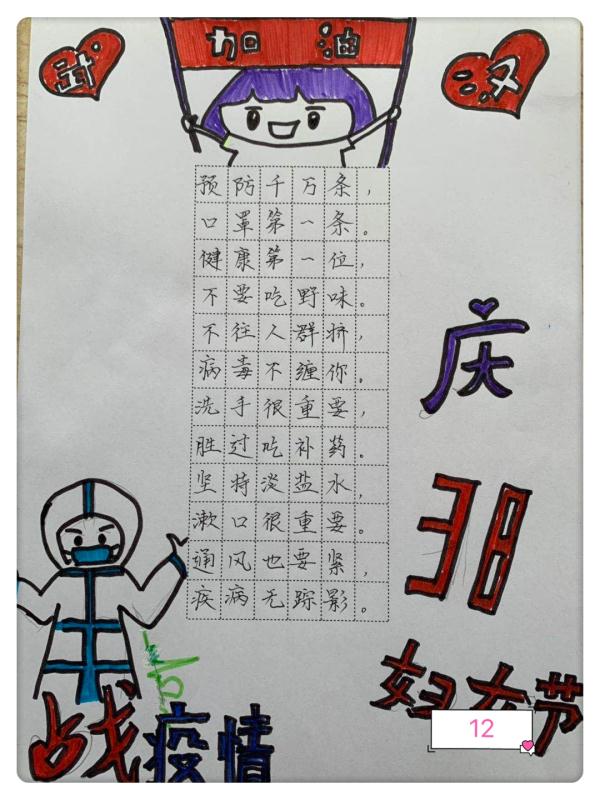 武
加油
汉
预防千万条，
口罩第一条。
健康第一位，
不要吃野味。
不往人群挤，
病毒不缠你。
洗手很重要，
胜过吃补药。
坚持淡盐水，
漱口很重要。
通风也要紧，
疾病无踪影。
庆
38
妇女节
战疫情
12